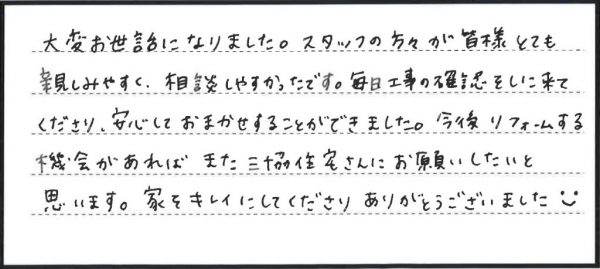 大変お世話になりました。スタッフの方々が皆様とても
親しみやすく、相談しやすかったです。毎日工事の確認をしに来て
くださり、安心しておまかせすることができました。今後リフォームする
機会があれば また三協住宅さんにお願いしたいと
思います。家をキレイにしてくださり ありがとうございました